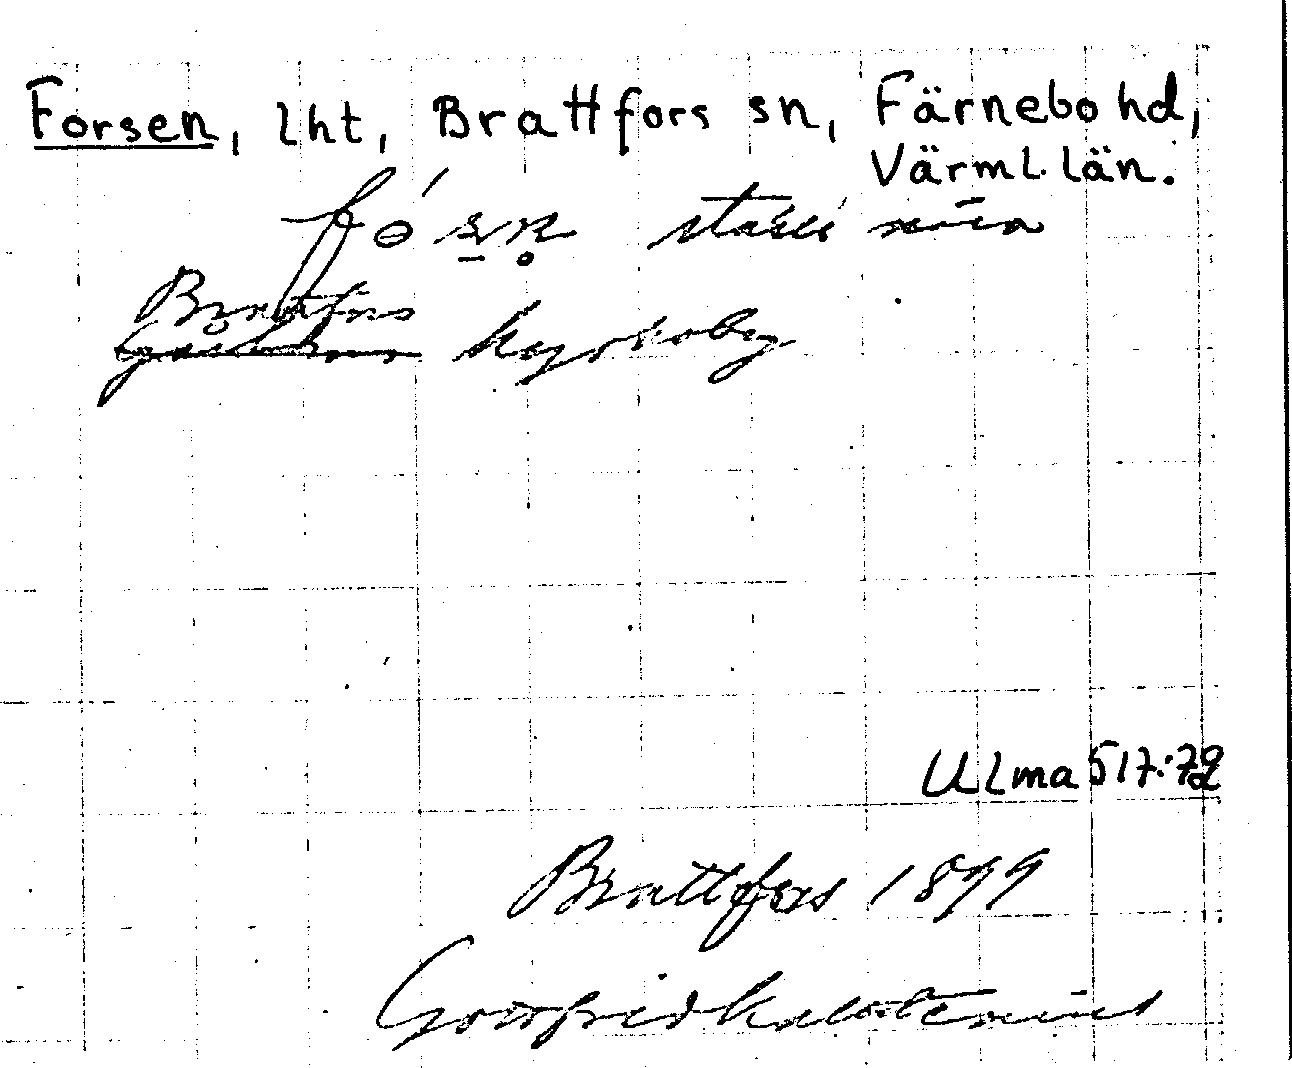 Forsen, lht, Brattfors sn, Färnebo hd,
Värml. län.
ställe nära
Brattfors kyrkoby
Ulma 517:72
Brattfors 1899
Gottfrid Kallstenius